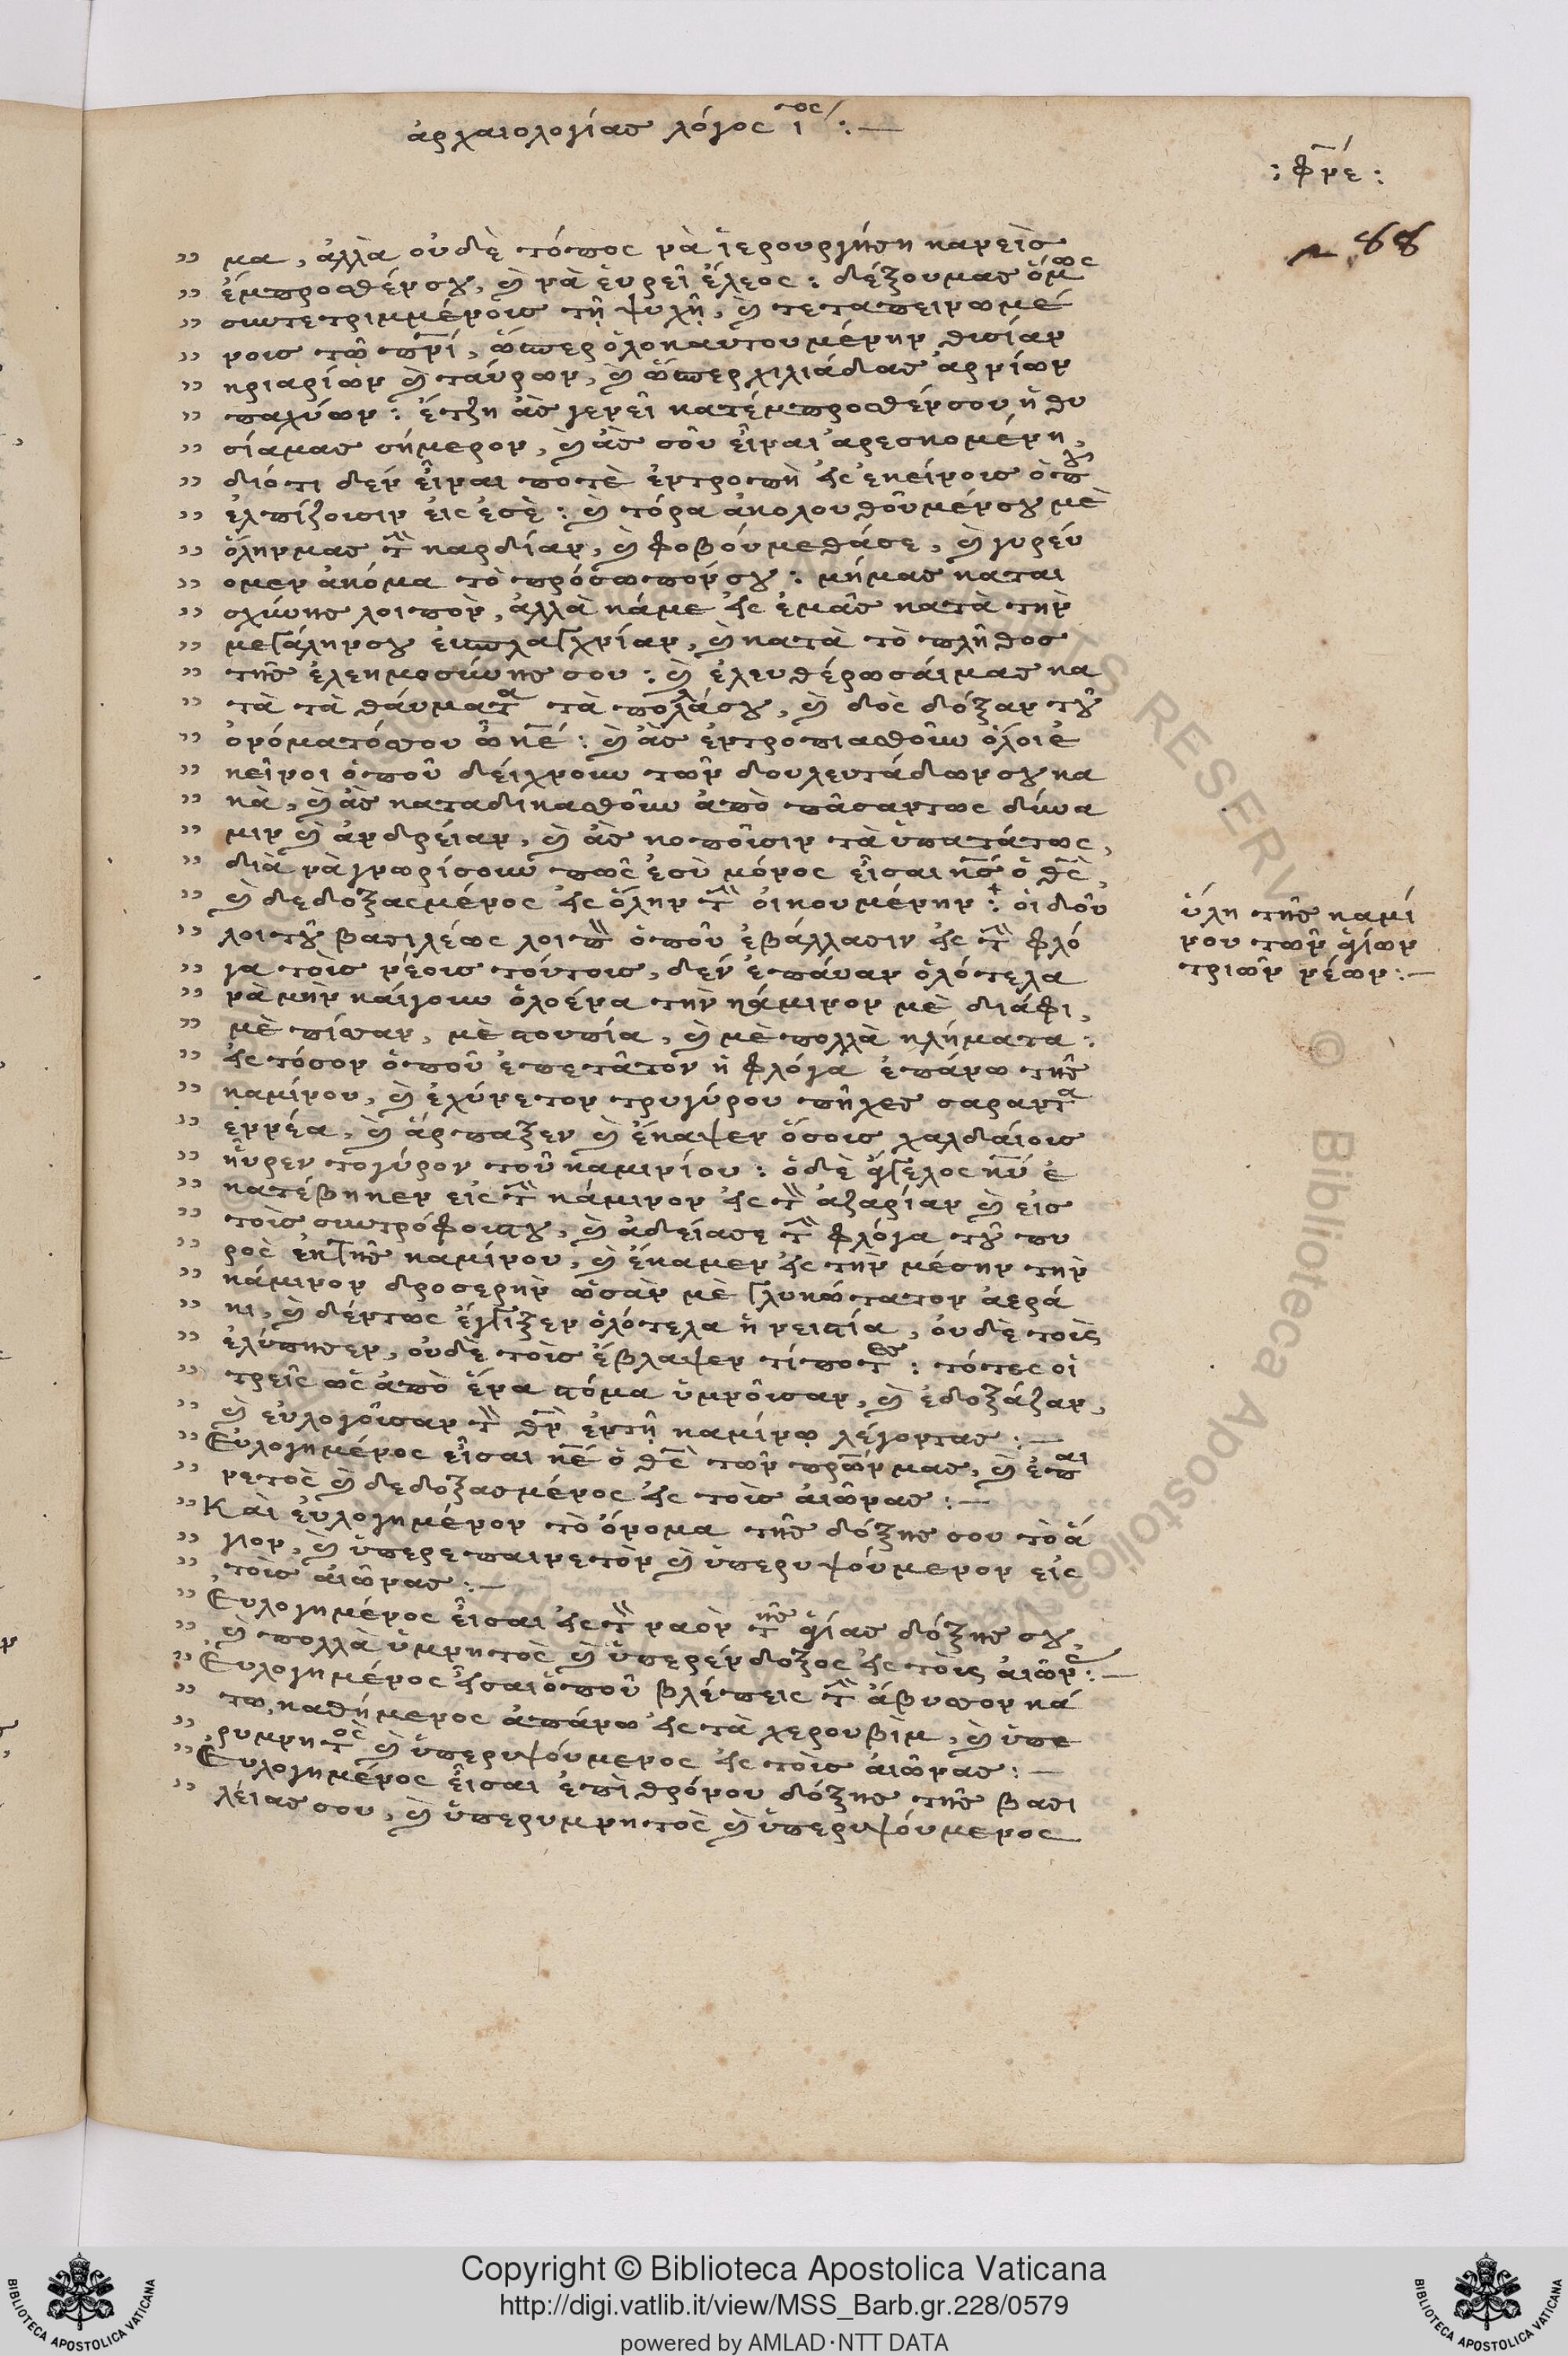 ἀρχαιολογίας λόγος ι´ος :—
: φνέ :
88
μα, ἀλλὰ οὐδὲ τόπος νὰ ἱερουργήση κανεὶς
ἐμπροσθένσου, καὶ νὰ εὑρεῖ ἔλεος : δέξουμας ὅμως
συντετριμμένοις τῇ ψυχῇ, καὶ τεταπεινωμέ
νοις τῷ πνι, ὥσπερ ὁλοκαυτουμένην θυσίαν
κριαρίων καὶ ταύρων, καὶ ὥσπερ χιλιάδας ἀρνίων
παχύων : ἔτζη ἂς γενεῖ κατέμπροσθένσου ἡ θυ
σίαμας σήμερον, καὶ ἂς σοῦ εἶναι ἀρεσκομένη,
διότι δὲν εἶναι ποτὲ ἐντροπὴ εἰς ἐκείνοις ὁποῦ
ἐλπίζουσιν εἰς ἐσὲ : καὶ τόρα ἀκολουθοῦμένσου μὲ
ὅλην μας τὴν καρδίαν, καὶ φοβούμεθάσε, καὶ γυρεύ
ομεν ἀκόμα τὸ πρόσωπόνσου : μήμας καται
σχύνης λοιπὸν, ἀλλὰ κάμε εἰς ἐμᾶς κατὰ τὴν
μεγάλην σου εὐσπλαγχνίαν, καὶ κατὰ τὸ πλῆθος
τῆς ἐλεημοσύνης σου : καὶ ἐλευθέρωσαίμας κα
τὰ τὰ θαύματα τὰ πολλάσου, καὶ δὸς δόξαν τοῦ
ὀνόματόσσου ὦ κε : καὶ ἂς ἐντροπιασθοῦν ὅλοι ἐ
κεῖνοι ὁποῦ δείχνουν τῶν δουλευτάδωνσου κα
κὰ, καὶ ἂς καταδικασθοῦν ἀπὸ πᾶσαντως δύνα
μιν καὶ ἀνδρείαν, καὶ ἂς κοποῦσιν τὰ ὑπατάτως,
διὰ νὰ γνωρίσουν πῶς ἐσὺ μόνος εἶσαι κς ὁ θς,
καὶ δεδοξασμένος εἰς ὅλην τὴν οἰκουμένην : οἱ δοῦ
λοι τοῦ βασιλέως λοιπὸν ὁποῦ ἐβάλλασιν εἰς τὴν φλό
γα τοὺς νέοις τούτοις, δὲν ἐπαύαν ὁλότελα
νὰ μὴν καίγουν ὁλοένα τὴν κάμινον μὲ διάφι,
μὲ πίσσαν, μὲ στουπία, καὶ μὲ πολλὰ κλήματα :
εἰς τόσον ὁποῦ ἐπετᾶτον ἡ φλόγα ἐπάνω τῆς
καμίνου, καὶ ἐχύνετον τρυγύρου πῆχες σαραντα
εννέα, καὶ ἄρπαξεν καὶ ἔκαψεν ὅσοις χαλδαίοις
ηὗρεν τογύρον τοῦ καμινίου : ὁ δὲ ἄγγελος κυ ἐ
κατέβηκεν εἰς τὴν κάμινον εἰς τὸν ἀζαρίαν καὶ εἰς
τοὶς συντρόφοιστου, καὶ ἀδείασε τὴν φλόγα τοῦ πυ
ρὸς ἐκ τῆς καμίνου, καὶ ἔκαμεν εἰς τὴν μέσην τὴν
κάμινον δροσερὴν ὡσὰν μὲ γλυκώτατον ἀερά
κι, καὶ δέντως ἔγγιξεν ὁλότελα ἡ νειστία, οὐδὲ τοὶς
ἐλύπησεν, οὐδὲ τοὶς ἔβλαψεν τίποτες : τότες οἱ
τρεῖς ὡς ἀπὸ ἕνα στόμα ὑμνοῦσαν, καὶ ἐδοξάζαν,
καὶ εὐλογοῦσαν τὸν θν ἐντῇ καμίνῳ λέγοντας :—
Εὐλογημένος εἶσαι κε ὁ θς τῶν πρων μας, καὶ ἐπαι
νετὸς καὶ δεδοξασμένος εἰς τοὶς αἰῶνας :—
Καὶ εὐλογημένον τὸ ὄνομα τῆς δόξης σου τὸ ἅ
γιον, καὶ ὑπερεπαινετὸν καὶ ὑπερυψούμενον εἰς
τοὶς αἰῶνας :—
Εὐλογημένος εἶσαι εἰς τὸν ναὸν τῆς ἁγίας δόξης σου,
καὶ πολλὰ ὑμνητὸς καὶ ὑπερένδοξος εἰς τοὶς αἰῶνας :—
Εὐλογημένος εἶσαι ὁποῦ βλέπεις τὴν ἄβυσσον κά
τω, καθήμενος ἀπάνω εἰς τὰ χερουβὶμ, καὶ ὑπε
ρυμνητὸς καὶ ὑπερυψούμενος εἰς τοὶς αἰῶνας :—
Εὐλογημένος εἶσαι ἐπὶ θρόνου δόξης τῆς βασι
λείας σου, καὶ ὑπερυμνητὸς καὶ ὑπερυψούμενος
ὕλη τῆς καμί
νου τῶν ἁγίων
τριῶν νέων :—
Copyright © Biblioteca Apostolica Vaticana
http://digi.vatlib.it/view/MSS_Barb.gr.228/0579
powered by AMLAD·NTT DATA
BIBLIOTECA APOSTOLICA VATICANA
BIBLIOTECA APOSTOLICA VATICANA